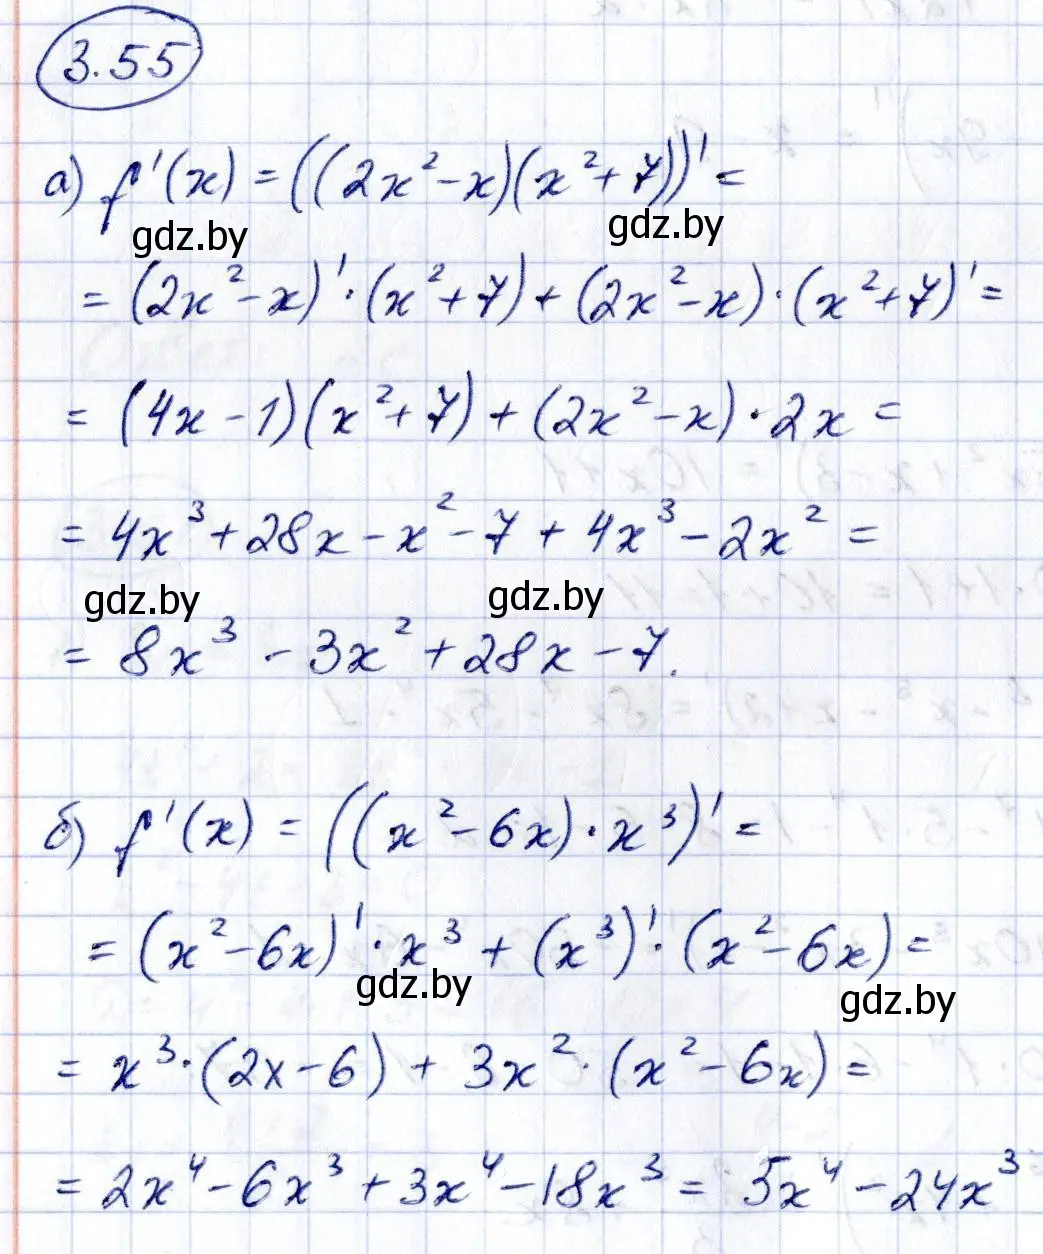 3.55
а) f'(x) = ((2x²-x)(x²+7))' =
gdz.by gdz.by
= (2x²-x)'·(x²+7)+(2x²-x)·(x²+7)' =
= (4x-1)(x²+7)+(2x²-x)·2x =
= 4x³+28x-x²-7+4x³-2x² =
gdz.by gdz.by
= 8x³-3x²+28x-7.
б) f'(x) = ((x²-6x)·x³)' =
= (x²-6x)'·x³+(x³)'·(x²-6x) =
gdz.by gdz.by
= x³·(2x-6)+3x²·(x²-6x) =
= 2x⁴-6x³+3x⁴-18x³ = 5x⁴-24x³